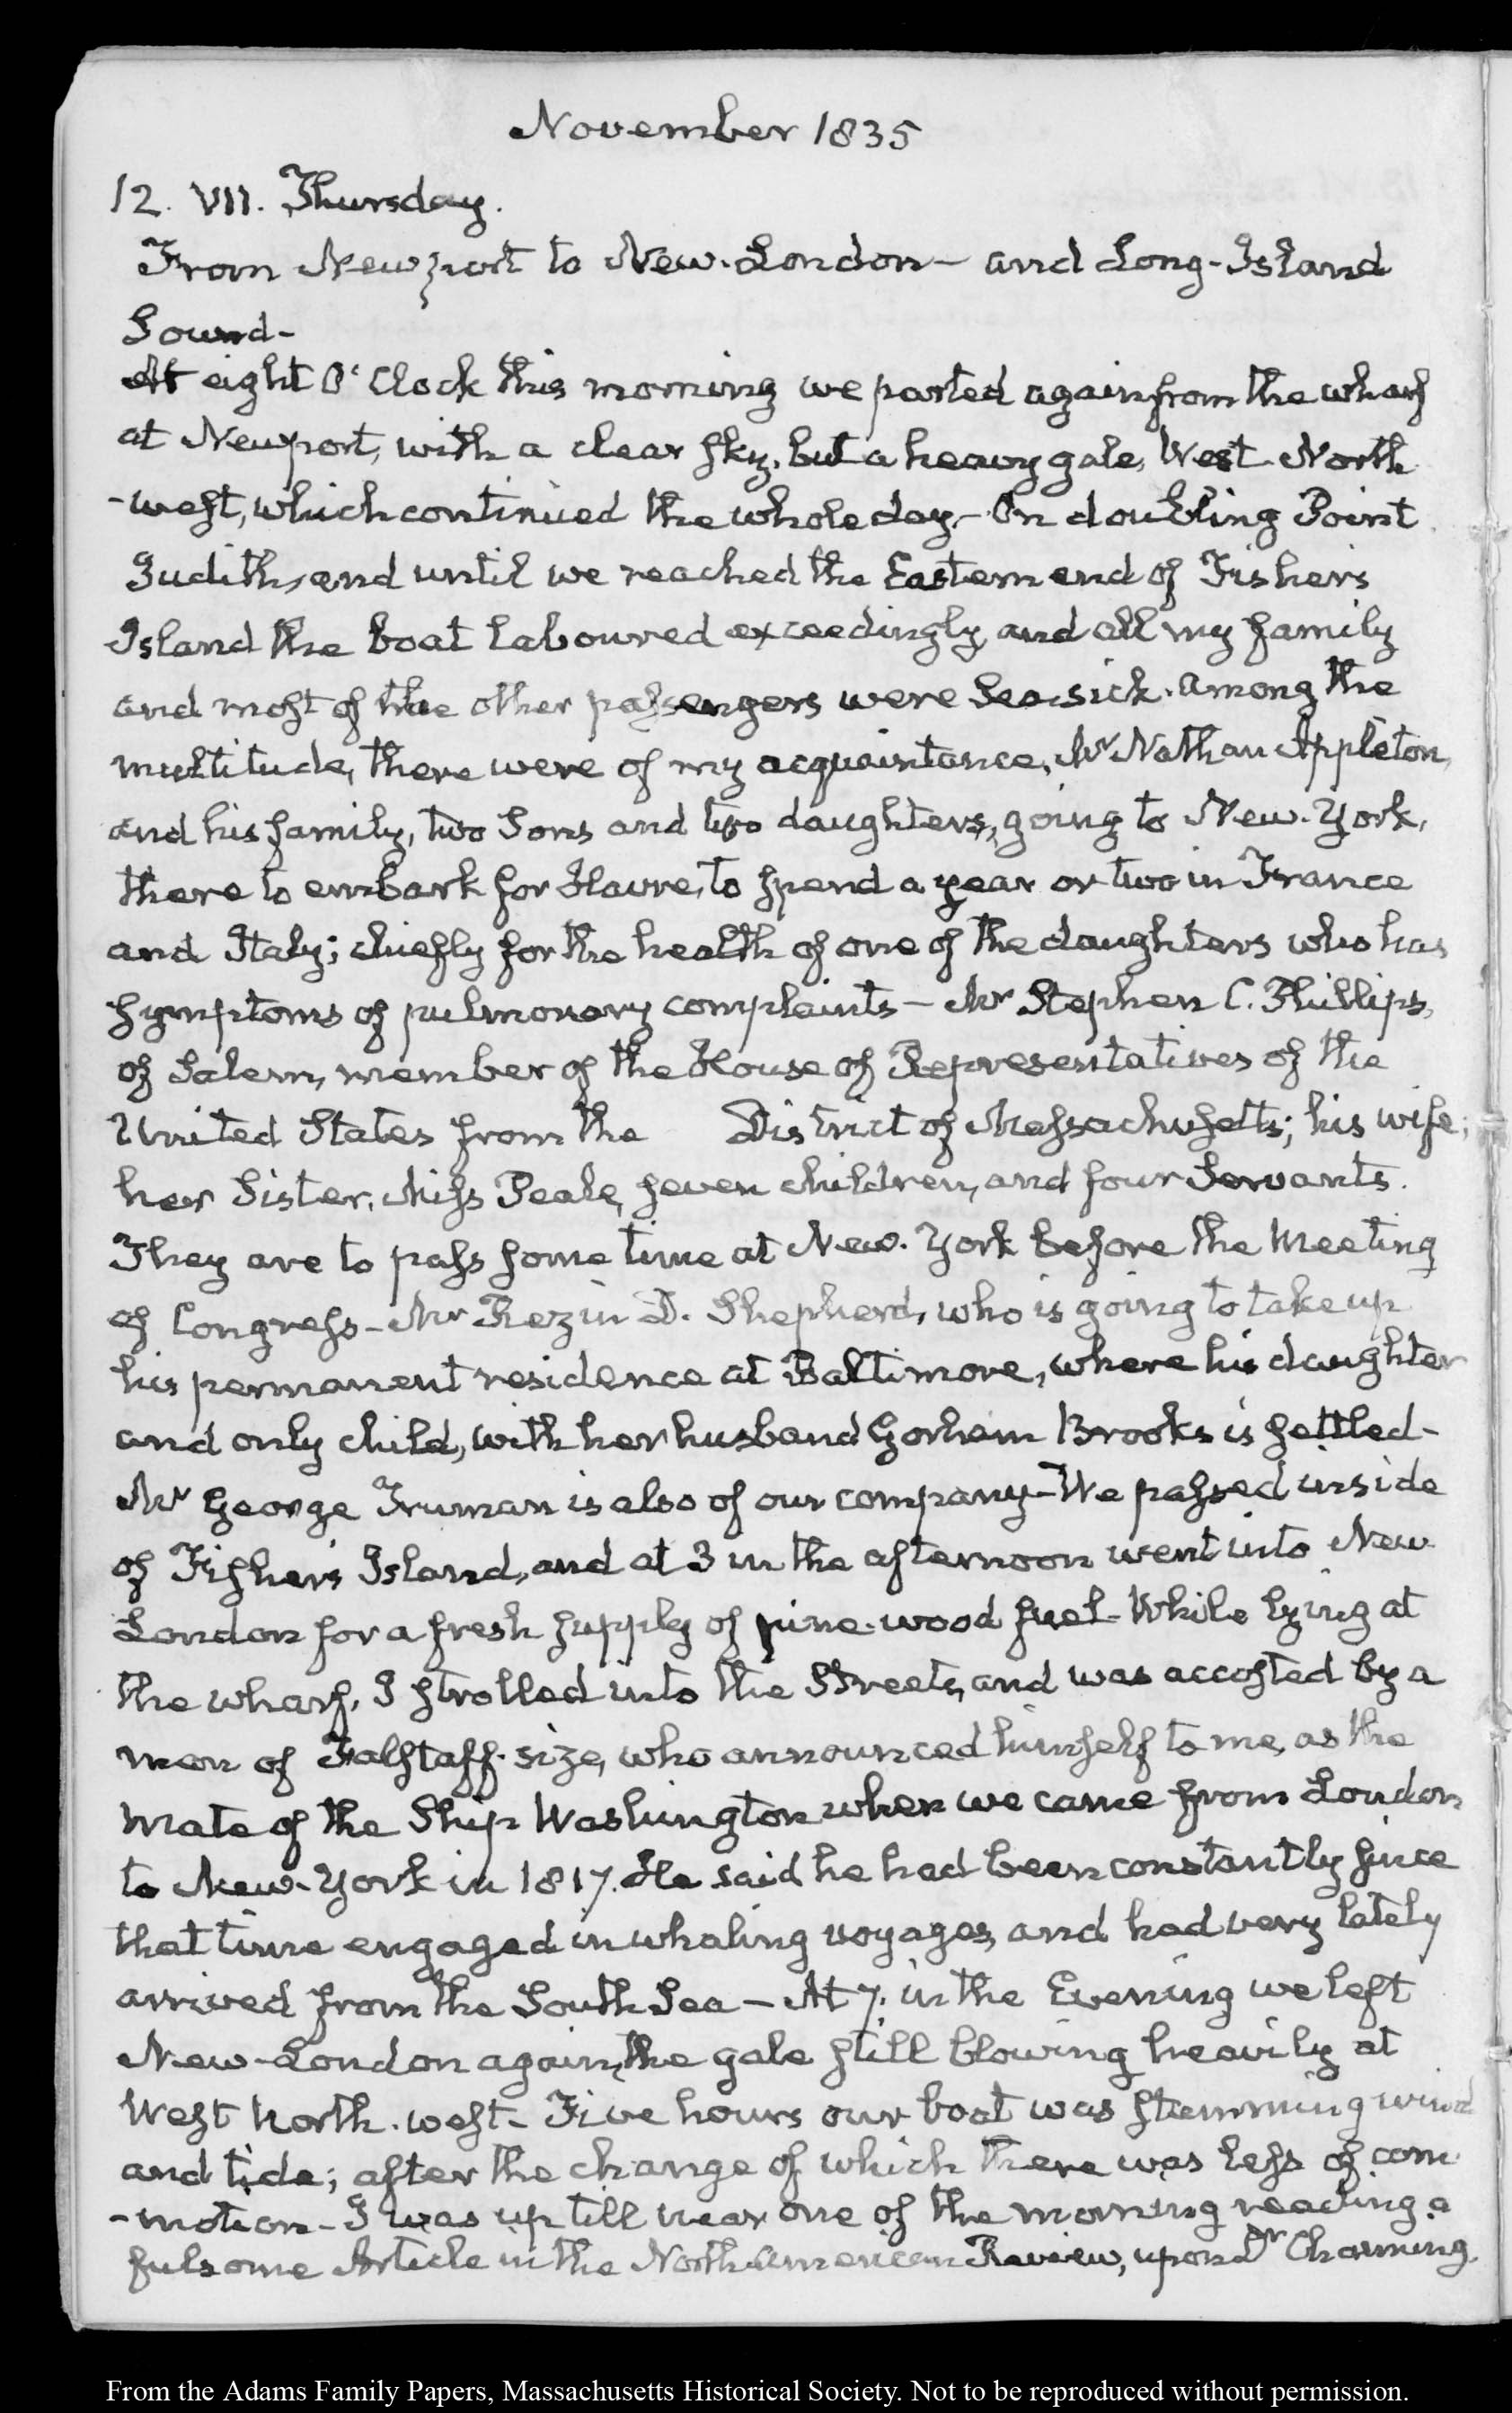 November 1835
12. VII. Thursday.
From Newport to New-London - and Long-Island
Sound-
At eight O'Clock this morning we parted again from the wharf
at Newport, with a clear sky, but a heavy gale, West North
-west, which continued the whole day.- On doubling Point
Judith, and until we reached the Eastern end of Fishers
Island the boat laboured exceedingly and all my family
and most of the other passengers were Sea-sick. Among the
multitude, there were of my acquaintance, Mr Nathan Appleton,
and his family, two Sons and two daughters, going to New-York,
there to embark for Havre, to spend a year or two in France
and Italy; chiefly for the health of one of the daughters who has
symptoms of pulmonary complaints - Mr Stephen C. Phillips,
of Salem, member of the House of Representatives of the
United States from the District of Massachusetts; his wife;
her Sister, Miss Peale, seven children, and four Servants.
They are to pass some time at New-York before the Meeting
of Congress - Mr Rezin D. Shepherd, who is going to take up
his permanent residence at Baltimore, where his daughter
and only child, with her husband Gorham Brooks is settled -
Mr George Truman is also of our company - We passed inside
of Fisher's Island, and at 3 in the afternoon went into New
London for a fresh supply of pine-wood fuel - While lying at
the wharf, I strolled into the Streets, and was accosted by a
man of Falstaff-size, who announced himself to me, as the
Mate of the Ship Washington when we came from London
to New-York in 1817. He said he had been constantly since
that time engaged in whaling voyages, and had very lately
arrived from the South Sea - At 7. in the Evening we left
New-London again, the gale still blowing heavily at
West North-west - Five hours our boat was stemming wind
and tide; after the change of which there was less of com
-motion - I was up till near one of the morning reading a
fulsome Article in the North American Review, upon Dr Channing.
From the Adams Family Papers, Massachusetts Historical Society. Not to be reproduced without permission.